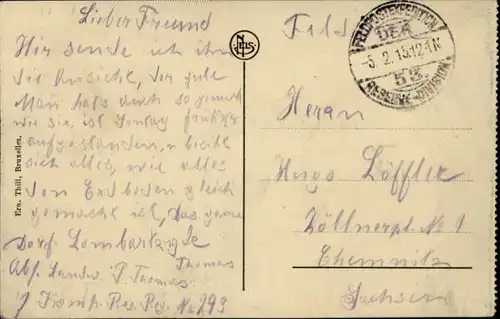 Lieber Freund
Hir sende ich ihn
die Ansicht, der gute
Man hats auch so gemacht
wie sie, ist Sontag früher
aufgestanden, u. besiht
sich alles, wie alles
den Erdboden gleich
gemacht ist, Das ganze
Dorf. Lombartzyde
Thomas
Abs. Landw. P. Thomas
7 Komp. Res. Reg. No 243
Ern. Thill, Bruxelles.
NELS
Feld
FELDPOSTEXPEDITION
DER
-5. 2. 15. 12-1 N
53.
RESERVE-DIVISION
Herrn
Hugo Löffler
Zöllnerpl. No 1
Chemnitz
Sachsen